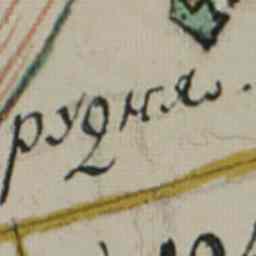 рудня.